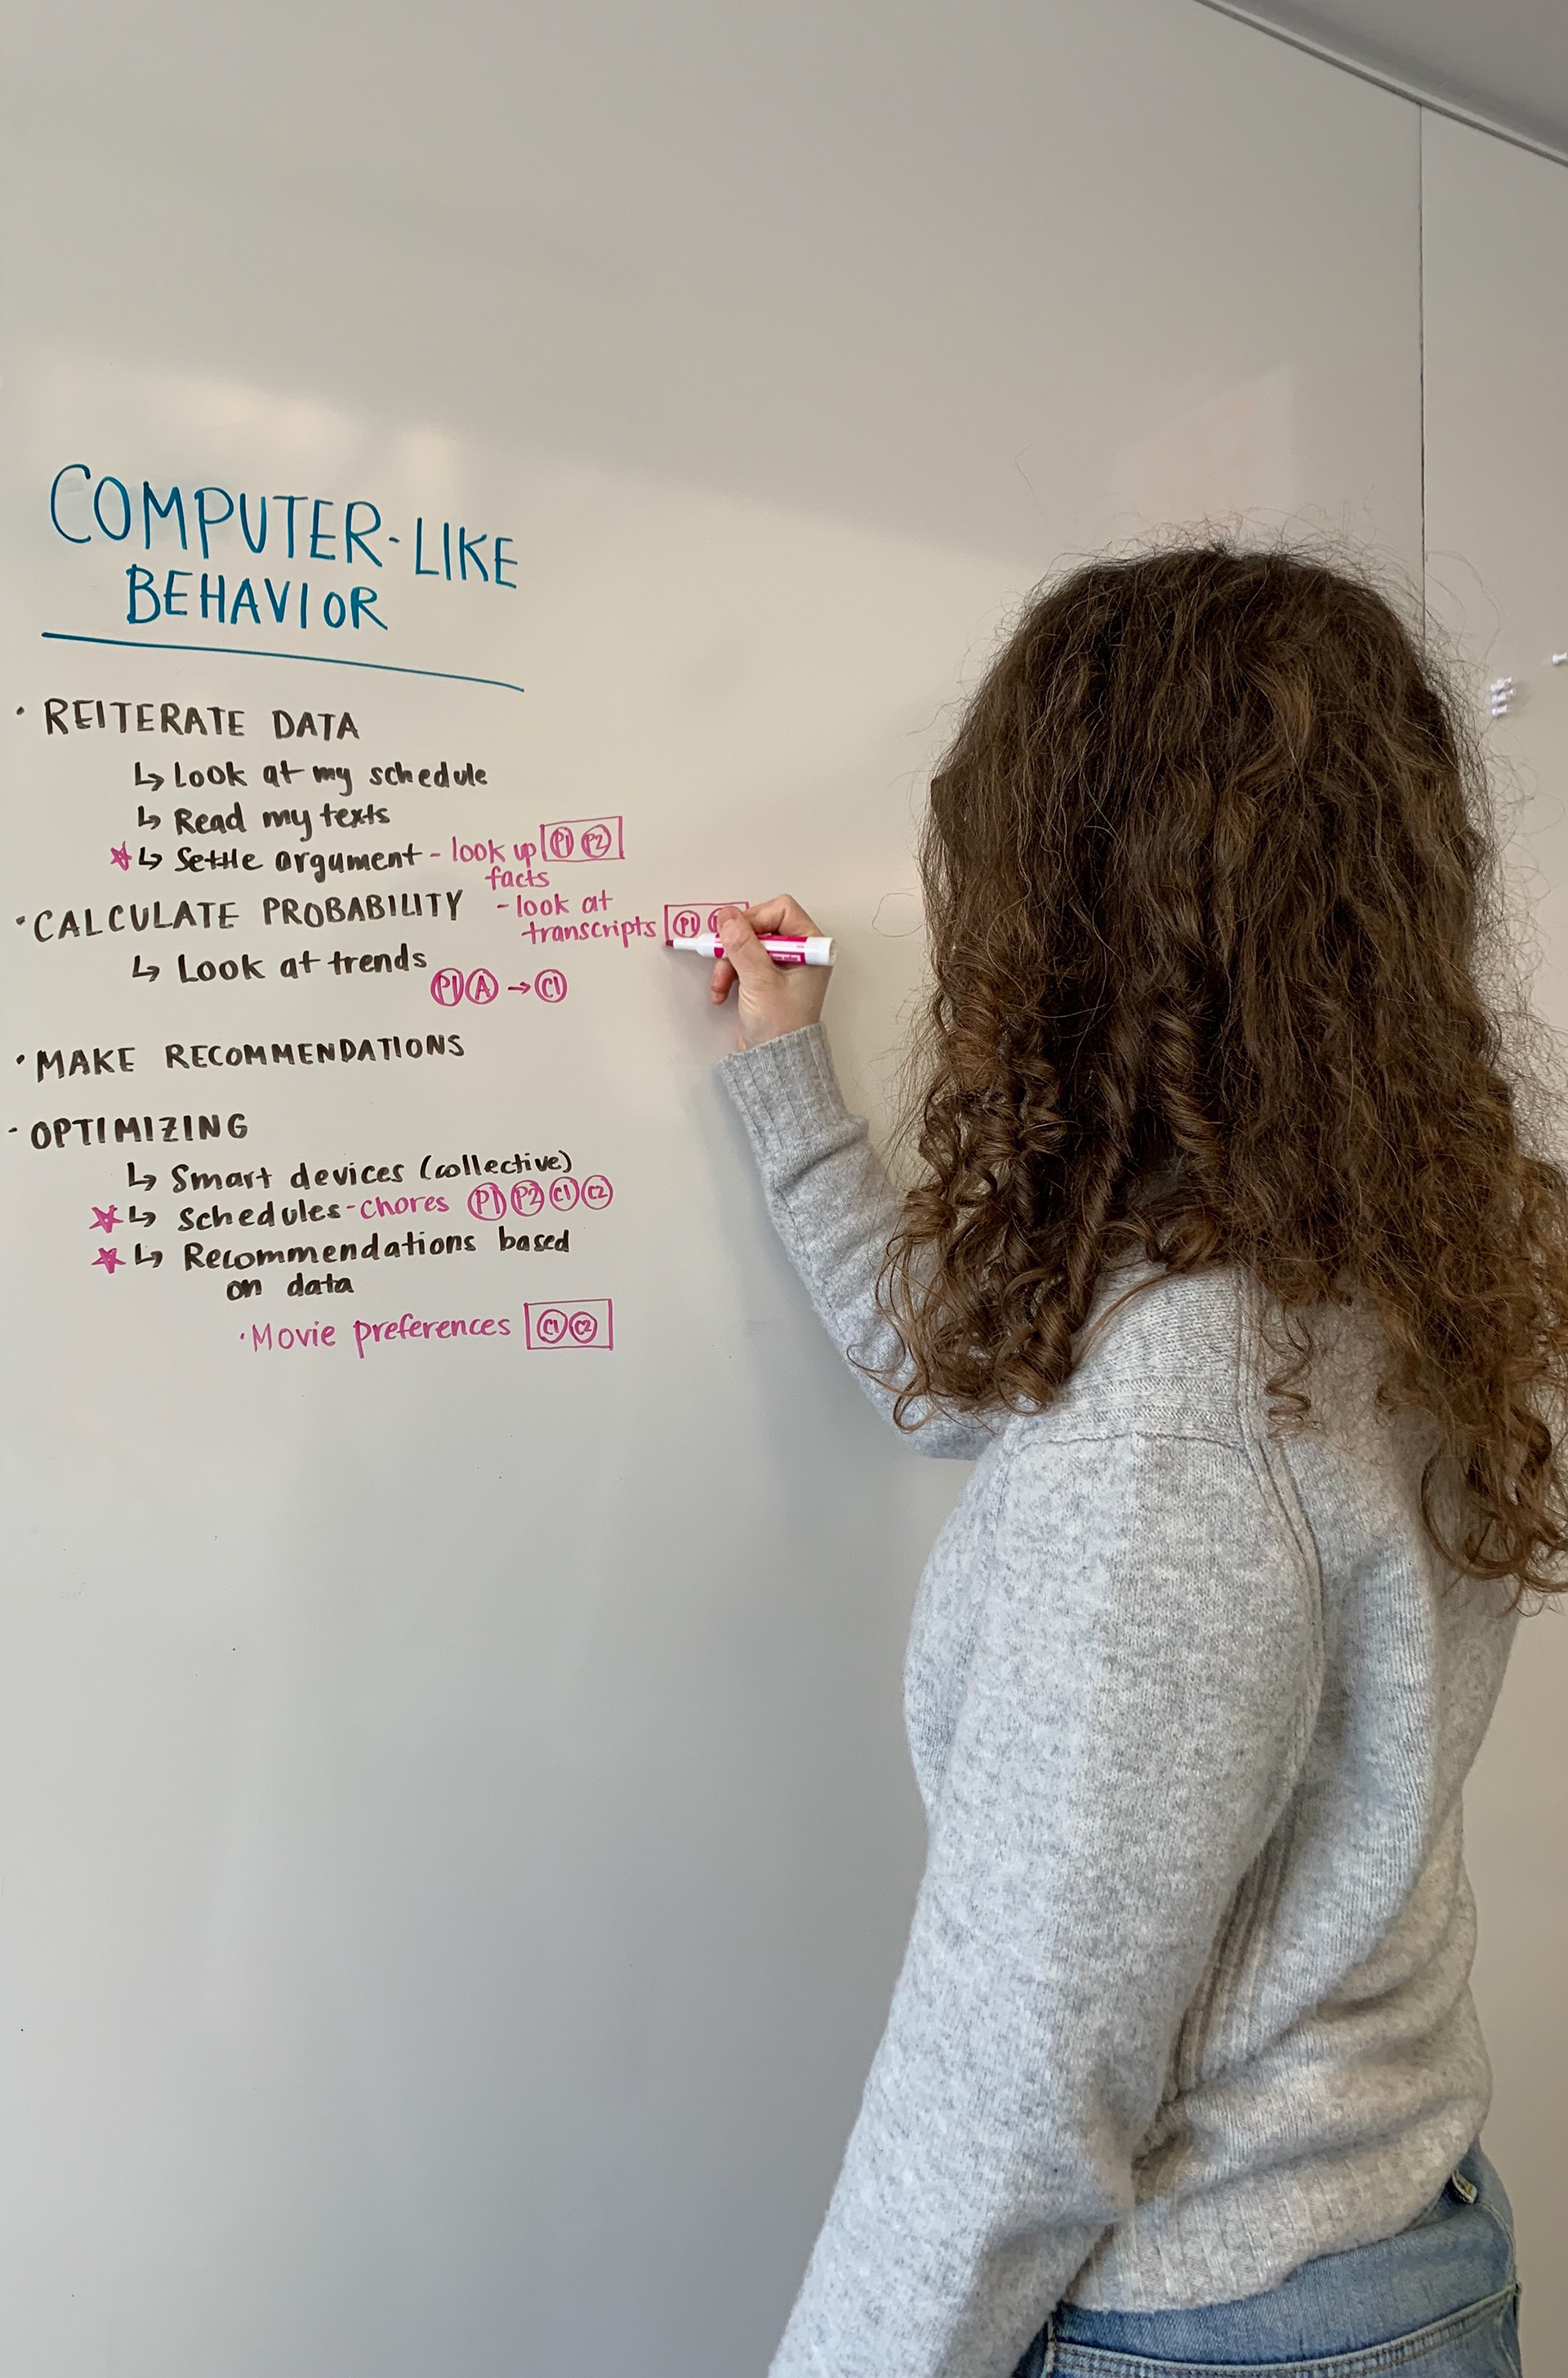 COMPUTER-LIKE
BEHAVIOR
· REITERATE DATA
↳ Look at my schedule
↳ Read my texts
☆ ↳ Settle argument - look up P1 P2
facts
· CALCULATE PROBABILITY - look at
transcripts P1
↳ Look at trends
P1 A → C1
· MAKE RECOMMENDATIONS
· OPTIMIZING
↳ Smart devices (collective)
☆ ↳ Schedules - chores P1 P2 C1 C2
☆ ↳ Recommendations based
on data
· Movie preferences C1 C2